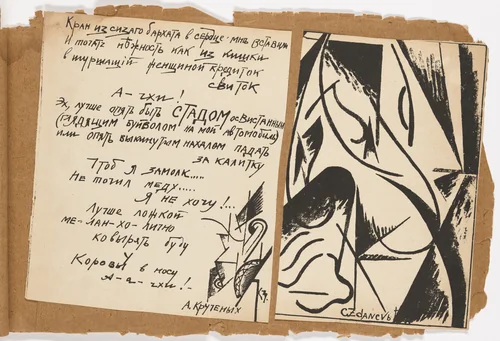 Кран из сизаго бархата в сердце мнѣ вставили
И топать нѣжность как из кишки
в шуршащій женщиной кредиток
свиток
А-чхи!
Эх, лучше опять быть СТАДОМ освистанным
буйволом на мой автомобиль)
или опять выкинутым нахалом падать
за калитку
Чтоб я замолк.....
Не точил меду....
Я не хочу!...
Лучше ложкой
ме-лан-хо-литно
ковырять бузу
У
Коровы в носу
А-а-чхи!..
А. Крученых
C Zdanevt